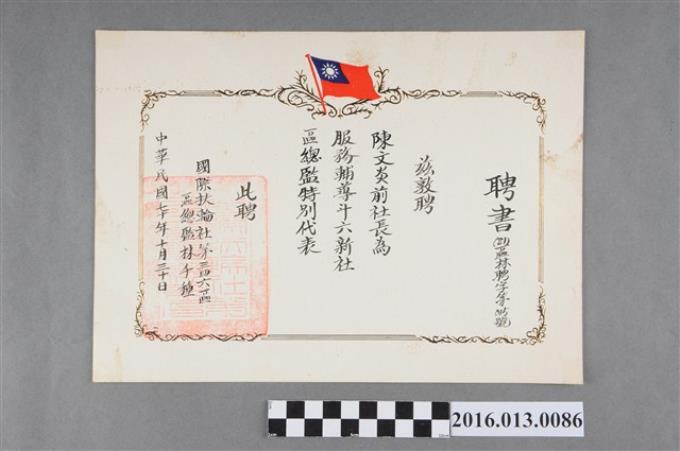 聘書
區林聘字第 號
茲敦聘
陳文炎前社長為
服務輔導斗六新社
區總監特別代表
此聘
國際扶輪社第三四六區
區總監林千種
中華民國七十年十月三十日
2016.013.0086